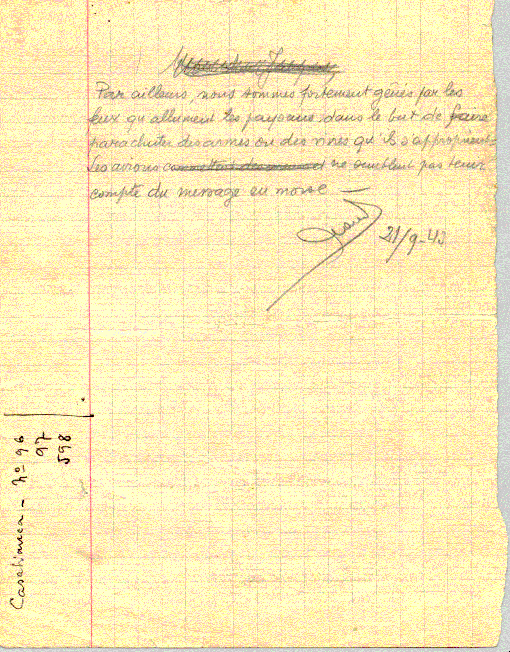 Par ailleurs, nous sommes fortement gênés par les
feux qu'allument les paysans dans le but de faire
parachuter des armes ou des vivres qu'ils s'approprient
Les avions ne semblent pas tenir
compte du message en morse —
21/9-43
Casabianca - nº 96
97
598